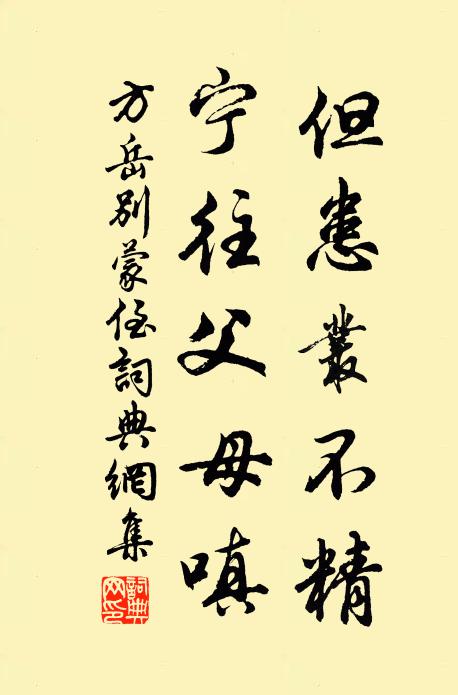 但患叢不精
宁往父母嗔
方岳別蒙侄詞典網集
詞典网印